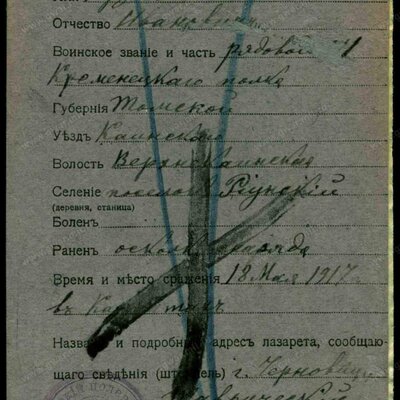 Отчество Ивановичъ
Воинское званіе и часть рядовой
Кременецкаго полка
Губернія Томской
Уѣздъ Каинскаго
Волость Верхнекаинской
Селеніе поселокъ
(деревня, станица)
Боленъ
Раненъ осколк. снаряда
Время и мѣсто сраженія 18 Мая 1917
въ Карпатахъ
Названіе и подробный адресъ лазарета, сообщаю-
щаго свѣдѣнія (штемпель) г. Черновицы